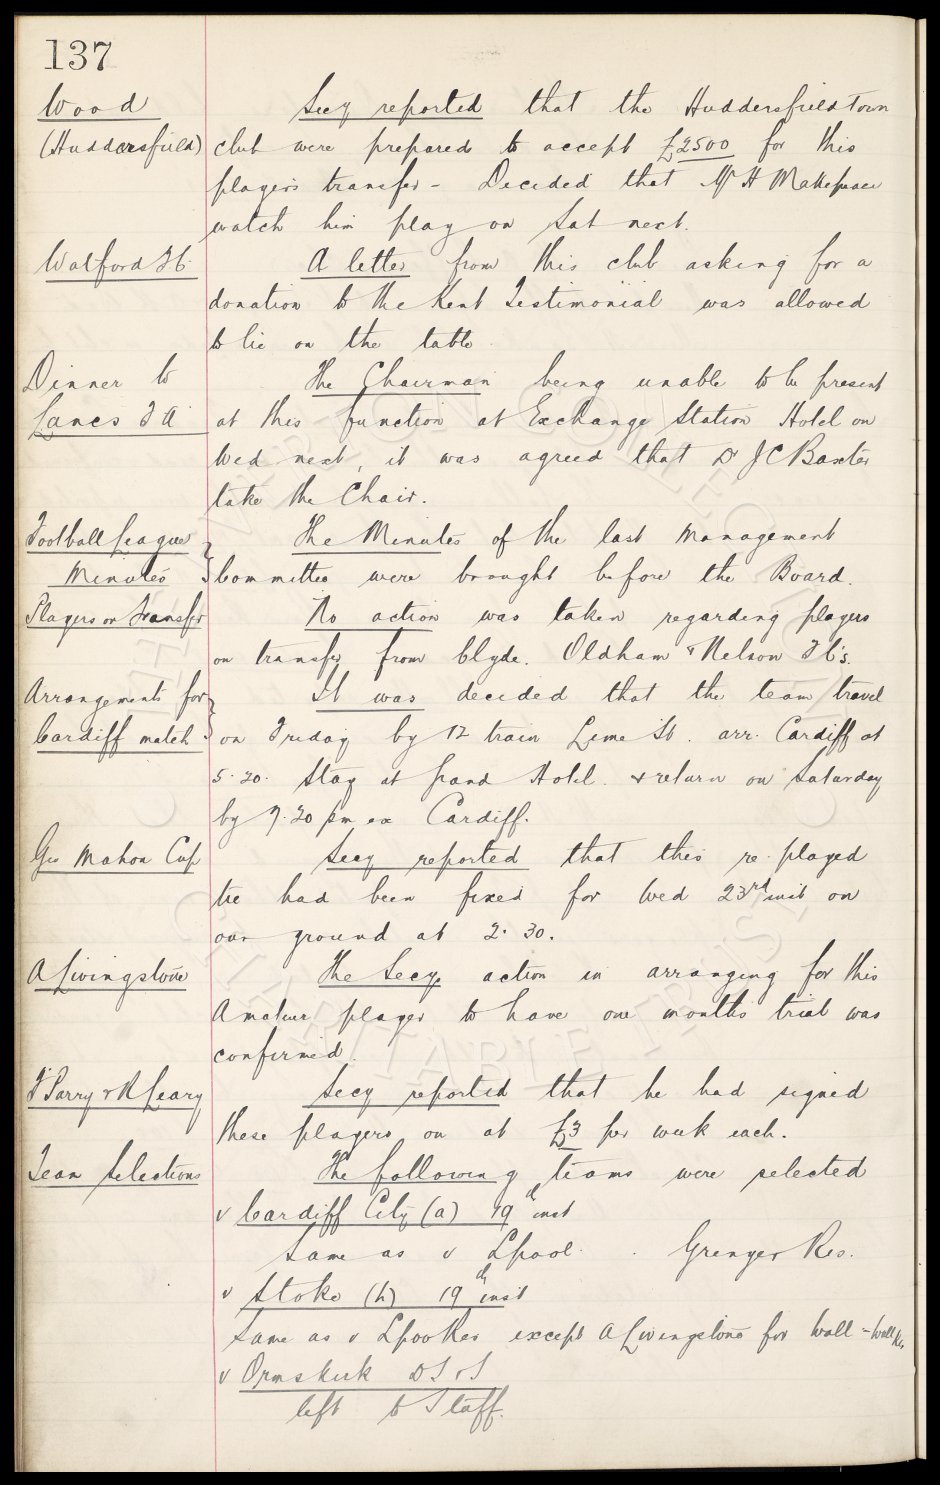 137
Wood
(Huddersfield)
Secy reported that the Huddersfield Town
club were prepared to accept £2500 for this
players transfer - Decided that Mr H Makepeace
watch him play on Sat next.
Watford F.C.
A letter from this club asking for a
donation to the Kent Testimonial was allowed
to lie on the table.
Dinner to
Lancs F A
The Chairman being unable to be present
at this function at Exchange Station Hotel on
Wed next, it was agreed that Dr J C Baxter
take the Chair.
Football League
Minutes
The Minutes of the last Management
Committee were brought before the Board.
Players on Transfer
No action was taken regarding players
on transfer from Clyde. Oldham & Nelson F.C's.
Arrangements for
Cardiff match
It was decided that the team travel
on Friday by 12 train Lime St. arr. Cardiff at
5.20. Stay at Grand Hotel. & return on Saturday
by 7.20 pm ex Cardiff.
Geo Mahon Cup
Secy reported that this re-played
tie had been fixed for Wed 23rd inst on
our ground at 2.30.
A Livingstone
The Secys action in arranging for this
Amateur player to have one months trial was
confirmed.
F Parry & R Leary
Secy reported that he had signed
these players on at £3 per week each.
Team Selections
The following teams were selected
v Cardiff City (a) 19th inst
Same as v Lpool. Grenyer Res.
v Stoke (h) 19th inst
Same as v Lpool Res except A Livingstone for Wall - Wall Res
v Ormskirk D S & S
left to Staff.
EVERTON COLLECTION
CHARITABLE TRUST